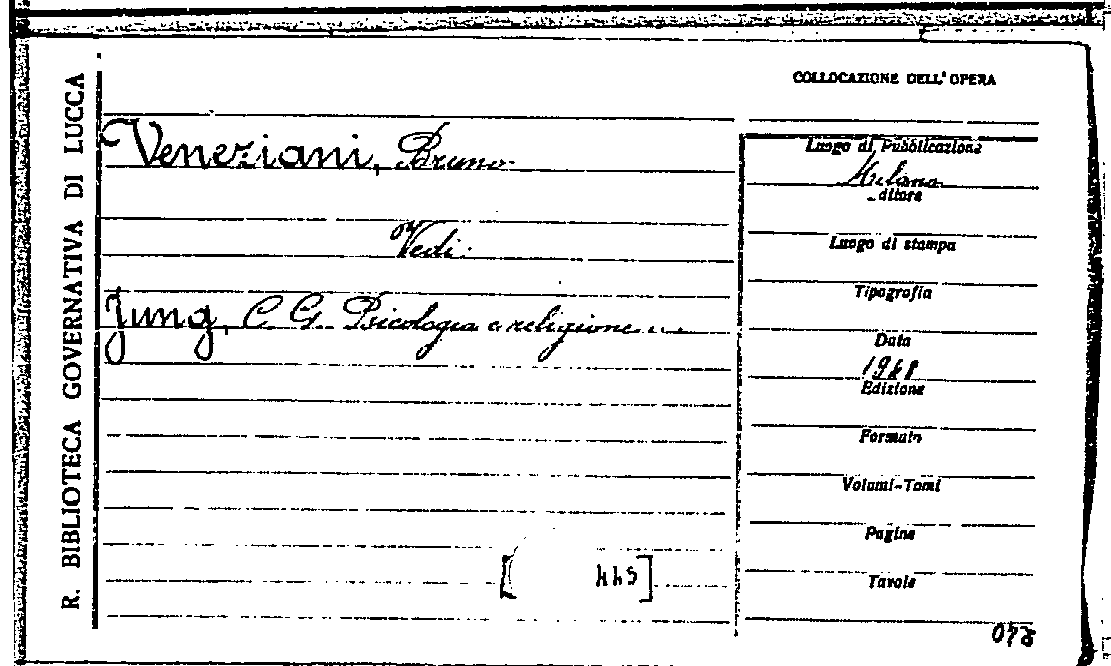 R. BIBLIOTECA GOVERNATIVA DI LUCCA
COLLOCAZIONE DELL'OPERA
Veneziani, Bruno
Vedi:
Jung, C. G. Psicologia e religione...
Luogo di Pubblicazione
Milano
ditore
Luogo di stampa
Tipografia
Data
1948
Edizione
Formato
Volumi-Tomi
Pagine
Tavole